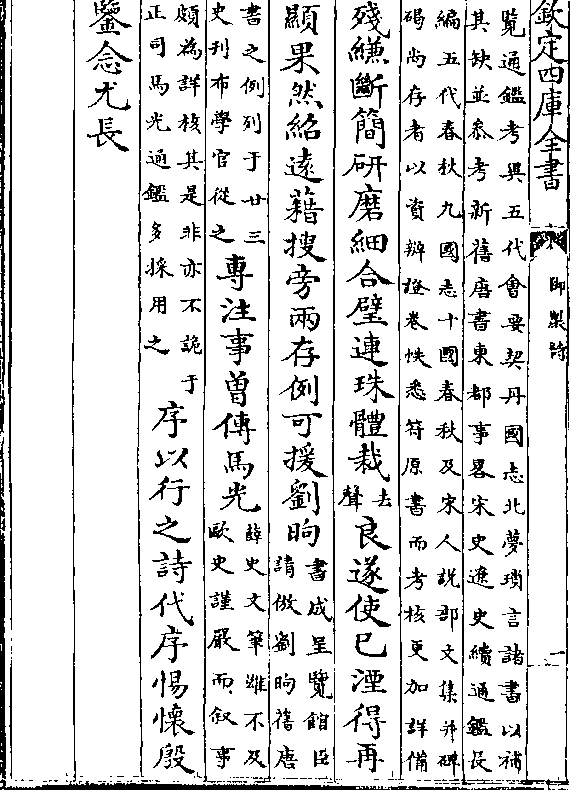 欽定四庫全書 御製詩 一
覽通鑑考異五代會要契丹國志北夢瑣言諸書以補
其缺並參考新舊唐書東都事畧宋史遼史續通鑑長
編五代春秋九國志十國春秋及宋人說部文集并碑
碣尚存者以資辯證卷帙悉符原書而考核更加詳備
殘縑斷簡研磨細合璧連珠體裁去聲良遂使已湮得再
顯果然紹遠藉搜旁兩存例可援劉昫書成呈覽館臣請倣劉昫舊唐
書之例列于廿三史刊布學官從之專注事曽傳馬光薛史文筆雖不及歐史謹嚴而叙事
頗為詳核其是非亦不詭于正司馬光通鑑多採用之序以行之詩代序惕懷殷
鑒念尤長